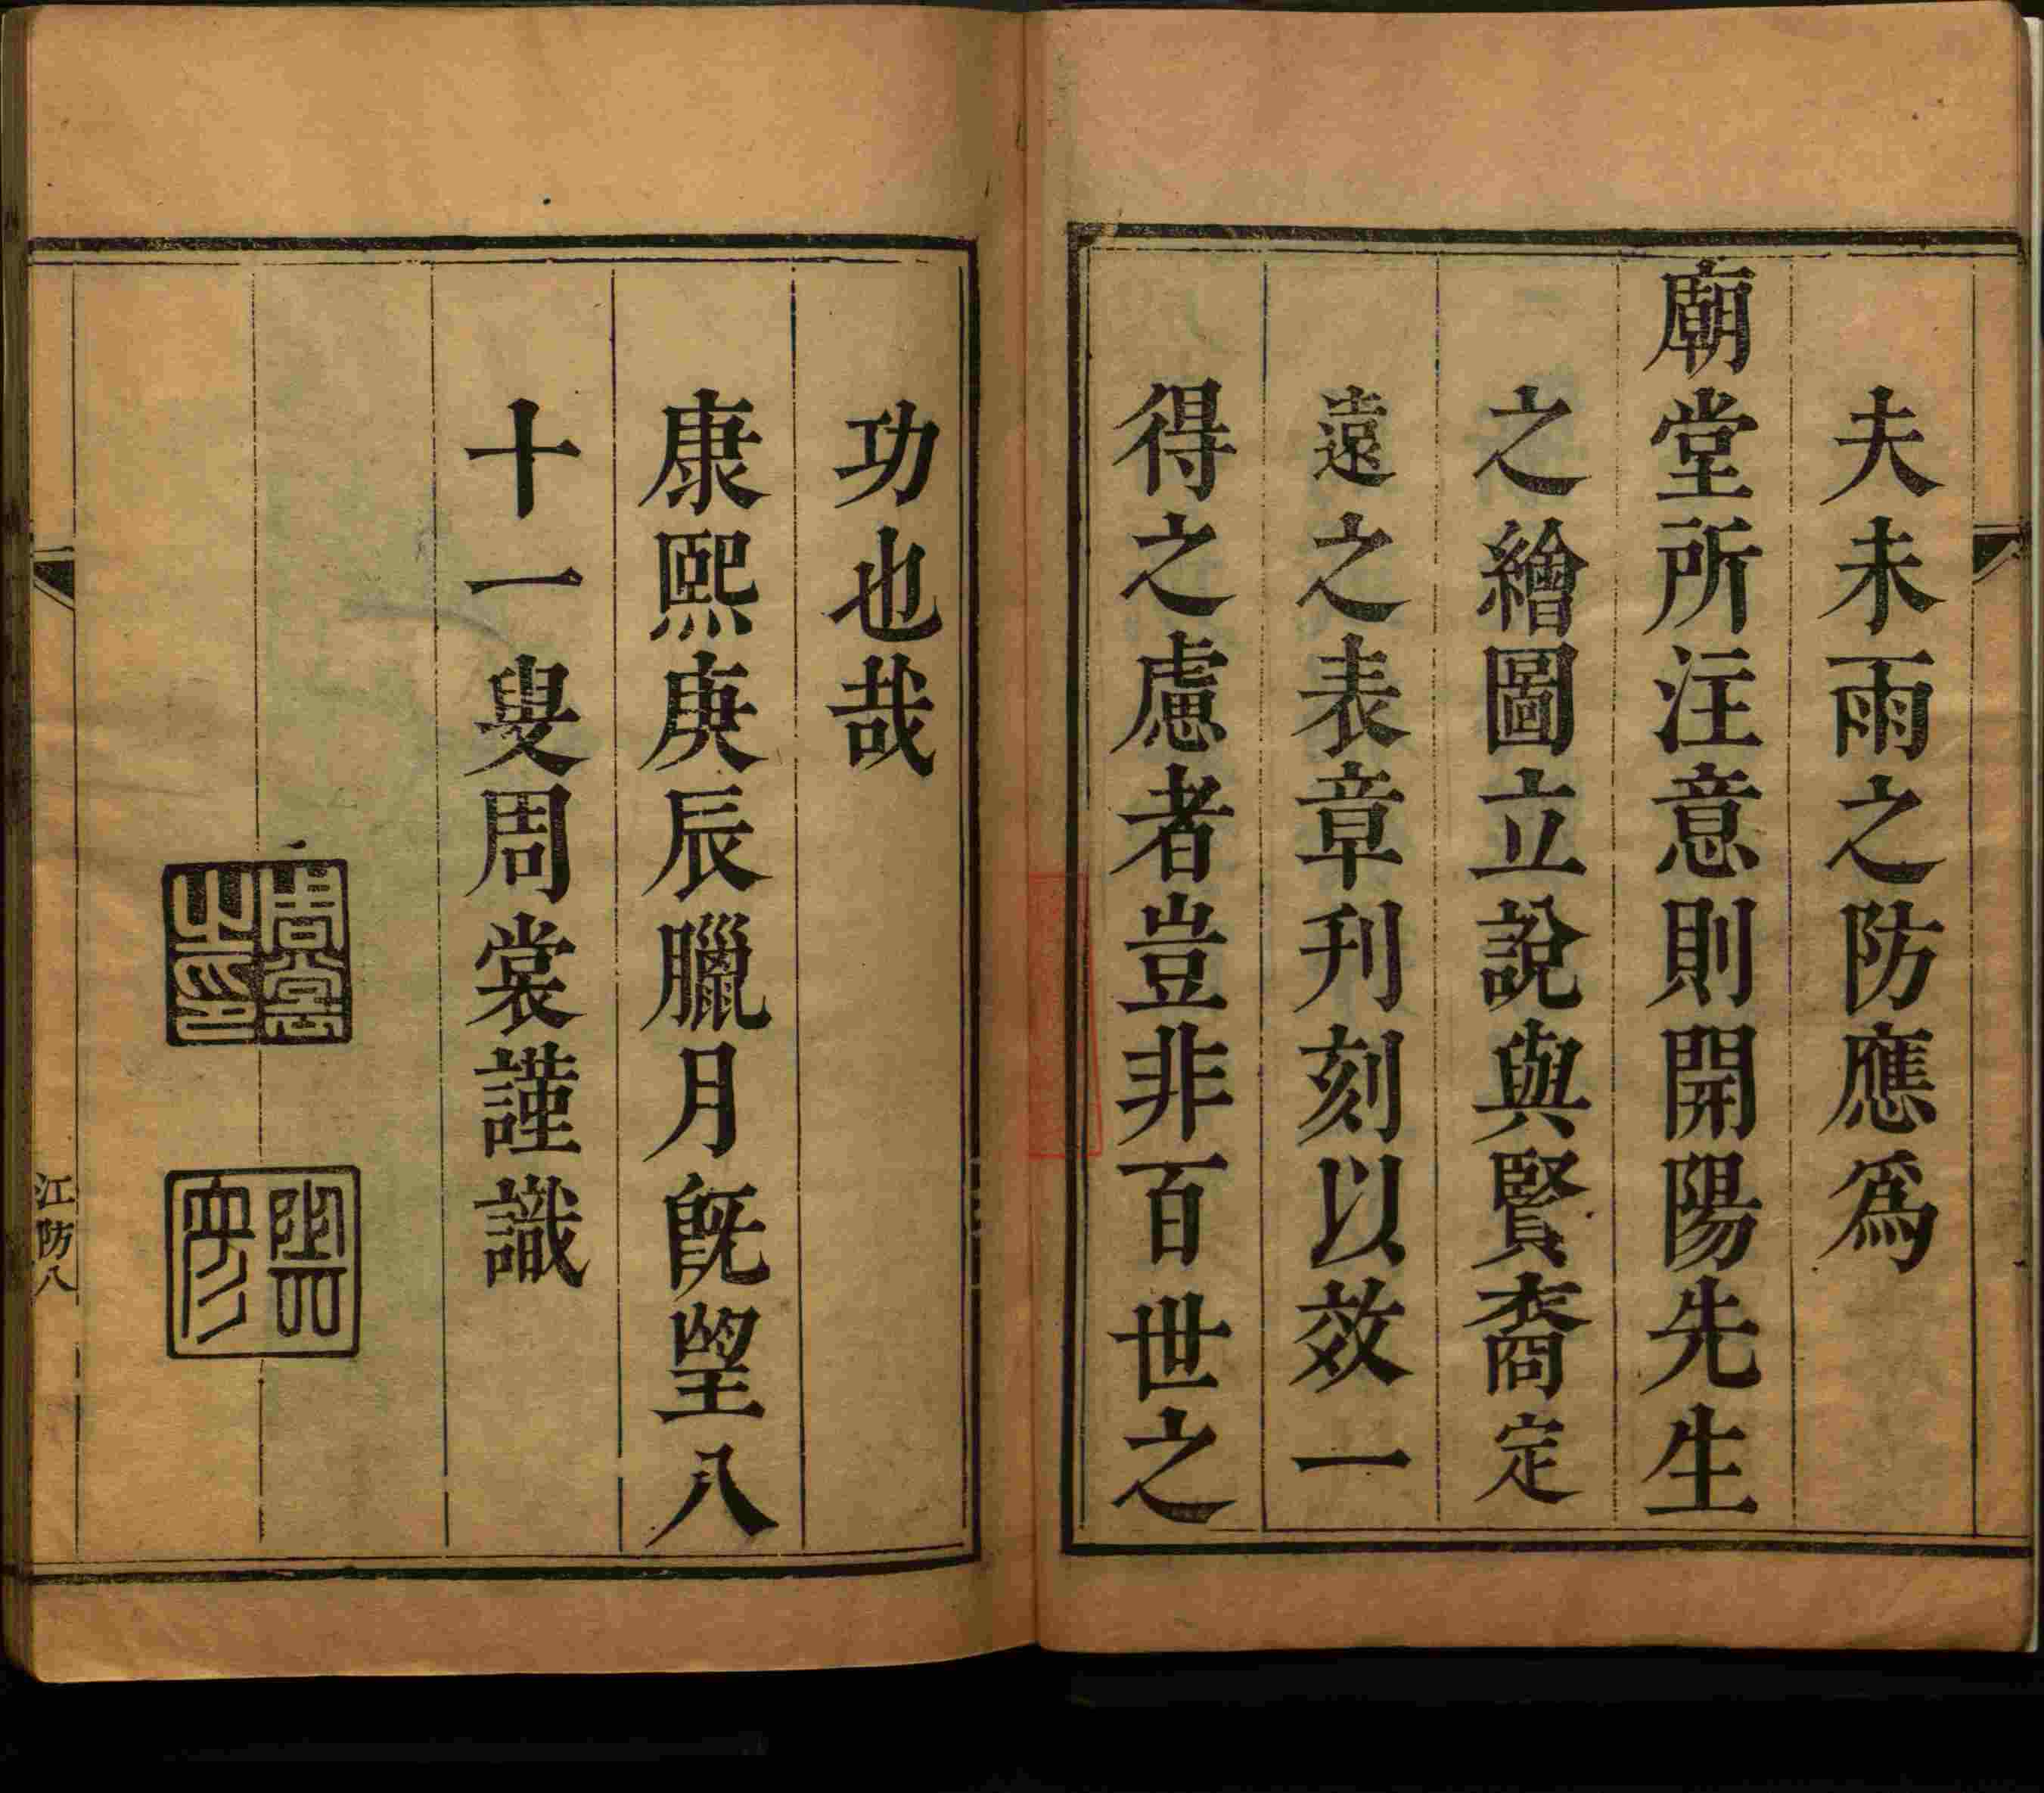 夫未雨之防應爲
廟堂所注意則開陽先生
之繪圖立說與賢裔定
遠之表章刋刻以效一
得之慮者豈非百世之
功也哉
康熙庚辰臘月旣望八
十一叟周裳謹識
周裳之印
江防八